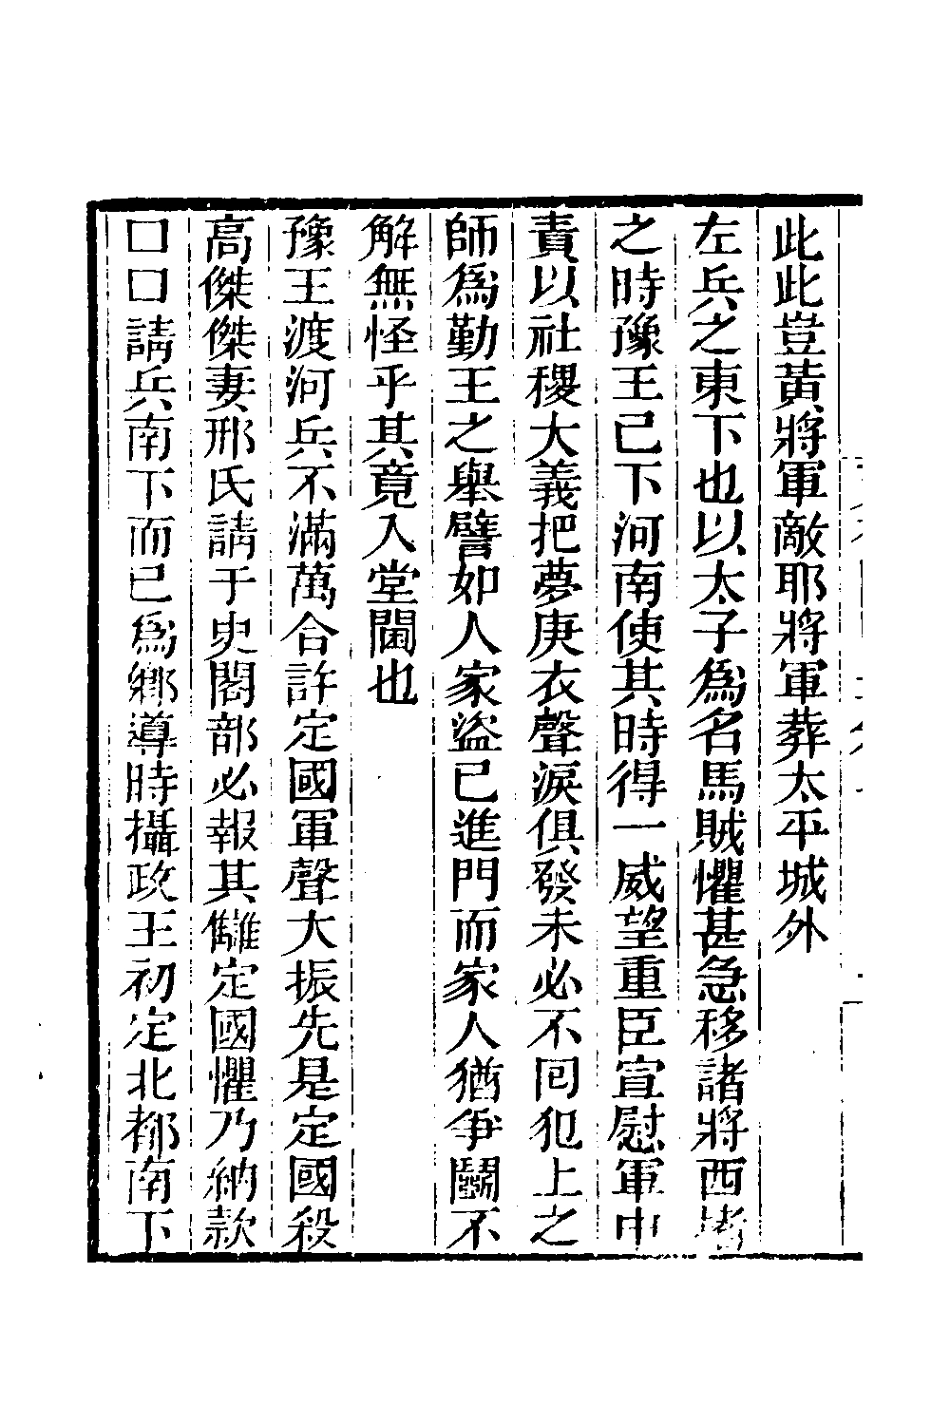 此此豈黃將軍敵耶將軍葬太平城外
左兵之東下也以太子爲名馬賊懼甚急移諸將西堵
之時豫王已下河南使其時得一威望重臣宣慰軍中
責以社稷大義把夢庚衣聲淚俱發未必不囘犯上之
師爲勤王之舉譬如人家盜已進門而家人猶爭鬭不
解無怪乎其竟入堂闥也
豫王渡河兵不滿萬合許定國軍聲大振先是定國殺
高傑傑妻邢氏請于史閣部必報其讎定國懼乃納款
口口請兵南下而已爲鄉導時攝政王初定北都南下